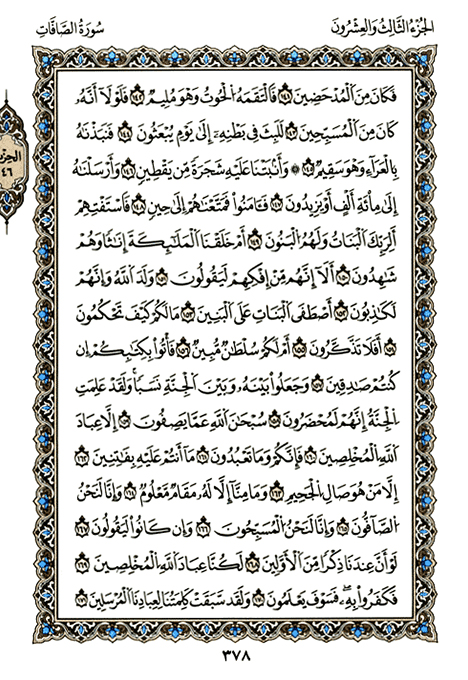 الجُزءُ الثَّالِثُ وَالعِشرُونَ
سُورَةُ الصَّافَّاتِ
فَكَانَ مِنَ الْمُدْحَضِينَ ﴿١٤١﴾ فَالْتَقَمَهُ الْحُوتُ وَهُوَ مُلِيمٌ ﴿١٤٢﴾ فَلَوْلَا أَنَّهُ
كَانَ مِنَ الْمُسَبِّحِينَ ﴿١٤٣﴾ لَلَبِثَ فِي بَطْنِهِ إِلَى يَوْمِ يُبْعَثُونَ ﴿١٤٤﴾ فَنَبَذْنَاهُ
بِالْعَرَاءِ وَهُوَ سَقِيمٌ ﴿١٤٥﴾ وَأَنْبَتْنَا عَلَيْهِ شَجَرَةً مِنْ يَقْطِينٍ ﴿١٤٦﴾ وَأَرْسَلْنَاهُ
إِلَى مِائَةِ أَلْفٍ أَوْ يَزِيدُونَ ﴿١٤٧﴾ فَآمَنُوا فَمَتَّعْنَاهُمْ إِلَى حِينٍ ﴿١٤٨﴾ فَاسْتَفْتِهِمْ
أَلِرَبِّكَ الْبَنَاتُ وَلَهُمُ الْبَنُونَ ﴿١٤٩﴾ أَمْ خَلَقْنَا الْمَلَائِكَةَ إِنَاثًا وَهُمْ
شَاهِدُونَ ﴿١٥٠﴾ أَلَا إِنَّهُمْ مِنْ إِفْكِهِمْ لَيَقُولُونَ ﴿١٥١﴾ وَلَدَ اللَّهُ وَإِنَّهُمْ
لَكَاذِبُونَ ﴿١٥٢﴾ أَصْطَفَى الْبَنَاتِ عَلَى الْبَنِينَ ﴿١٥٣﴾ مَا لَكُمْ كَيْفَ تَحْكُمُونَ
﴿١٥٤﴾ أَفَلَا تَذَكَّرُونَ ﴿١٥٥﴾ أَمْ لَكُمْ سُلْطَانٌ مُبِينٌ ﴿١٥٦﴾ فَأْتُوا بِكِتَابِكُمْ إِنْ
كُنْتُمْ صَادِقِينَ ﴿١٥٧﴾ وَجَعَلُوا بَيْنَهُ وَبَيْنَ الْجِنَّةِ نَسَبًا وَلَقَدْ عَلِمَتِ
الْجِنَّةُ إِنَّهُمْ لَمُحْضَرُونَ ﴿١٥٨﴾ سُبْحَانَ اللَّهِ عَمَّا يَصِفُونَ ﴿١٥٩﴾ إِلَّا عِبَادَ
اللَّهِ الْمُخْلَصِينَ ﴿١٦٠﴾ فَإِنَّكُمْ وَمَا تَعْبُدُونَ ﴿١٦١﴾ مَا أَنْتُمْ عَلَيْهِ بِفَاتِنِينَ ﴿١٦٢﴾
إِلَّا مَنْ هُوَ صَالِ الْجَحِيمِ ﴿١٦٣﴾ وَمَا مِنَّا إِلَّا لَهُ مَقَامٌ مَعْلُومٌ ﴿١٦٤﴾ وَإِنَّا لَنَحْنُ
الصَّافُّونَ ﴿١٦٥﴾ وَإِنَّا لَنَحْنُ الْمُسَبِّحُونَ ﴿١٦٦﴾ وَإِنْ كَانُوا لَيَقُولُونَ ﴿١٦٧﴾
لَوْ أَنَّ عِنْدَنَا ذِكْرًا مِنَ الْأَوَّلِينَ ﴿١٦٨﴾ لَكُنَّا عِبَادَ اللَّهِ الْمُخْلَصِينَ ﴿١٦٩﴾
فَكَفَرُوا بِهِ فَسَوْفَ يَعْلَمُونَ ﴿١٧٠﴾ وَلَقَدْ سَبَقَتْ كَلِمَتُنَا لِعِبَادِنَا الْمُرْسَلِينَ ﴿١٧١﴾
الجزء
٤٦
٣٧٨